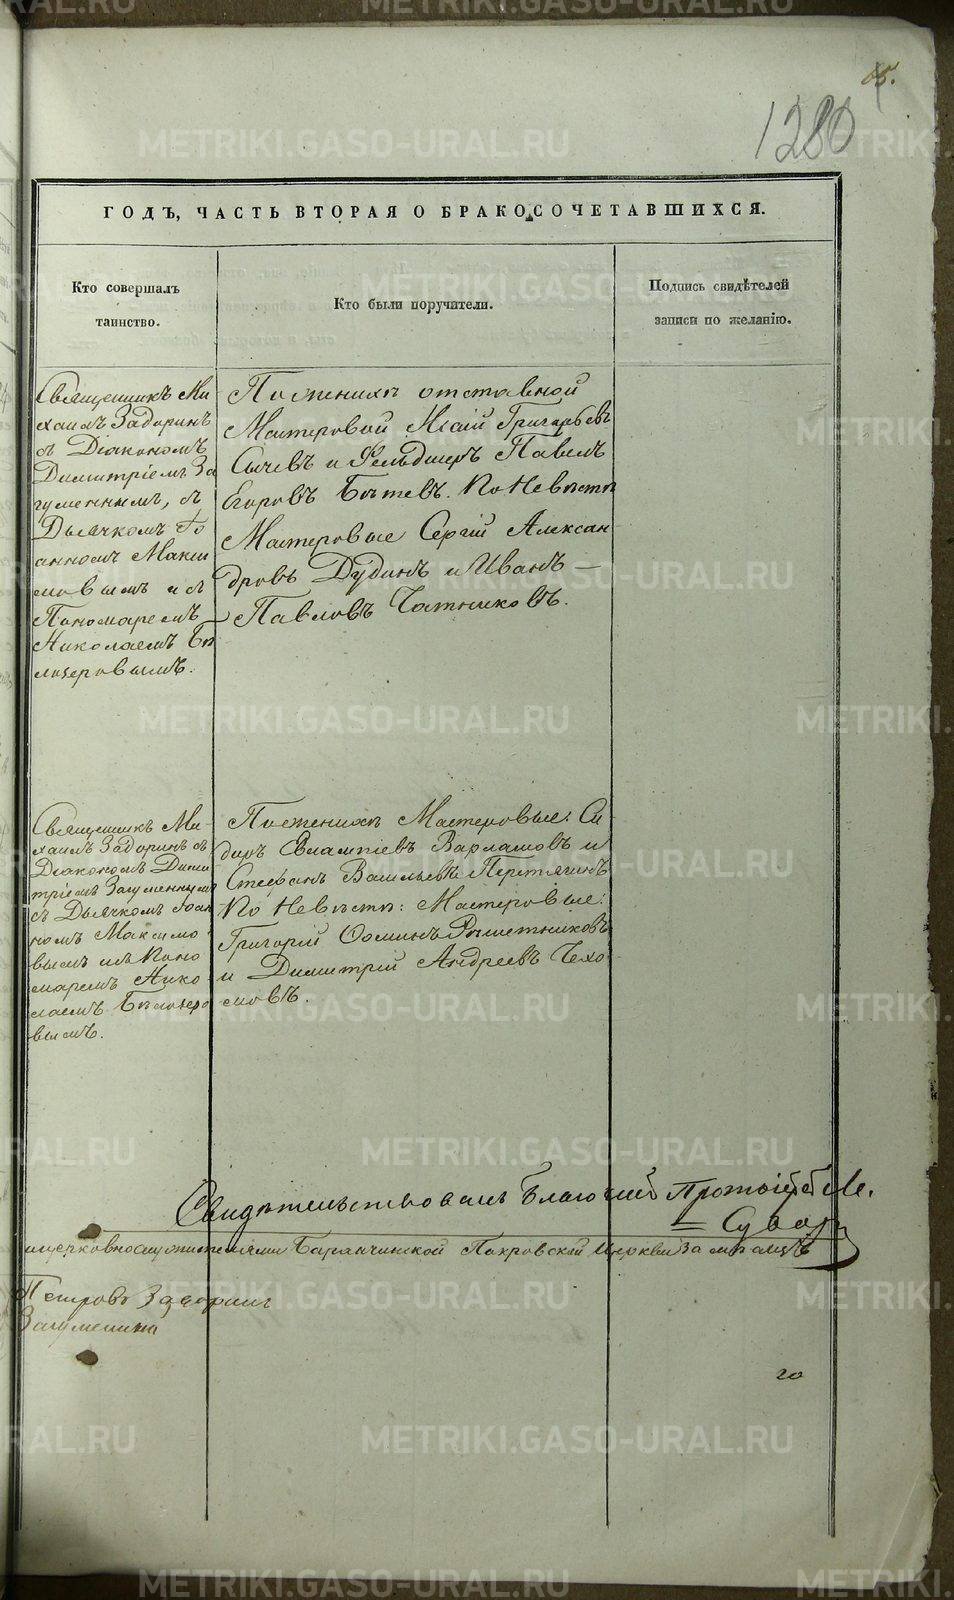 65.
1280
ГОДЪ, ЧАСТЬ ВТОРАЯ О БРАКОСОЧЕТАВШИХСЯ.
Кто совершалъ
таинство.
Кто были поручители.
Подпись свидѣтелей
записи по желанію.
Священникъ Ми
хаилъ Задоринъ
съ Діакономъ
Димитріемъ За
гуменнымъ, съ
Дьячкомъ Іо
анномъ Макси
мовымъ и съ
Пономаремъ
Николаемъ Бѣ
лозеровымъ.
По женихѣ отставной
Мастеровой Исаій Григорьевъ
Сычевъ и Фельдшеръ Павелъ
Егоровъ. По Невѣстѣ
Мастеровые Сергій Алексан
дровъ Дудинъ и Иванъ —
Павловъ
Священникъ Ми-
хаилъ Задоринъ съ
Діакономъ Дими
тріемъ Загуменнымъ
съ Дьячкомъ Іоан
номъ Максимо
вымъ и съ Поно
маремъ Нико
лаемъ Бѣлозеро
вымъ.
По женихѣ Мастеровые: Си
доръ Евлампіевъ Варламовъ и
Стефанъ Васильевъ Перетягинъ
По Невѣстѣ: Мастеровые:
Григорій Ѳоминъ Рѣшетниковъ
и Димитрій Андреевъ Чехо
мовъ.
Свидѣтельствовалъ Благочинный Протоіерей
церковнослужителями Баранчинской Покровской Церкви за мѣсяцъ
Петровъ Задоринъ
METRIKI.GASO-URAL.RU